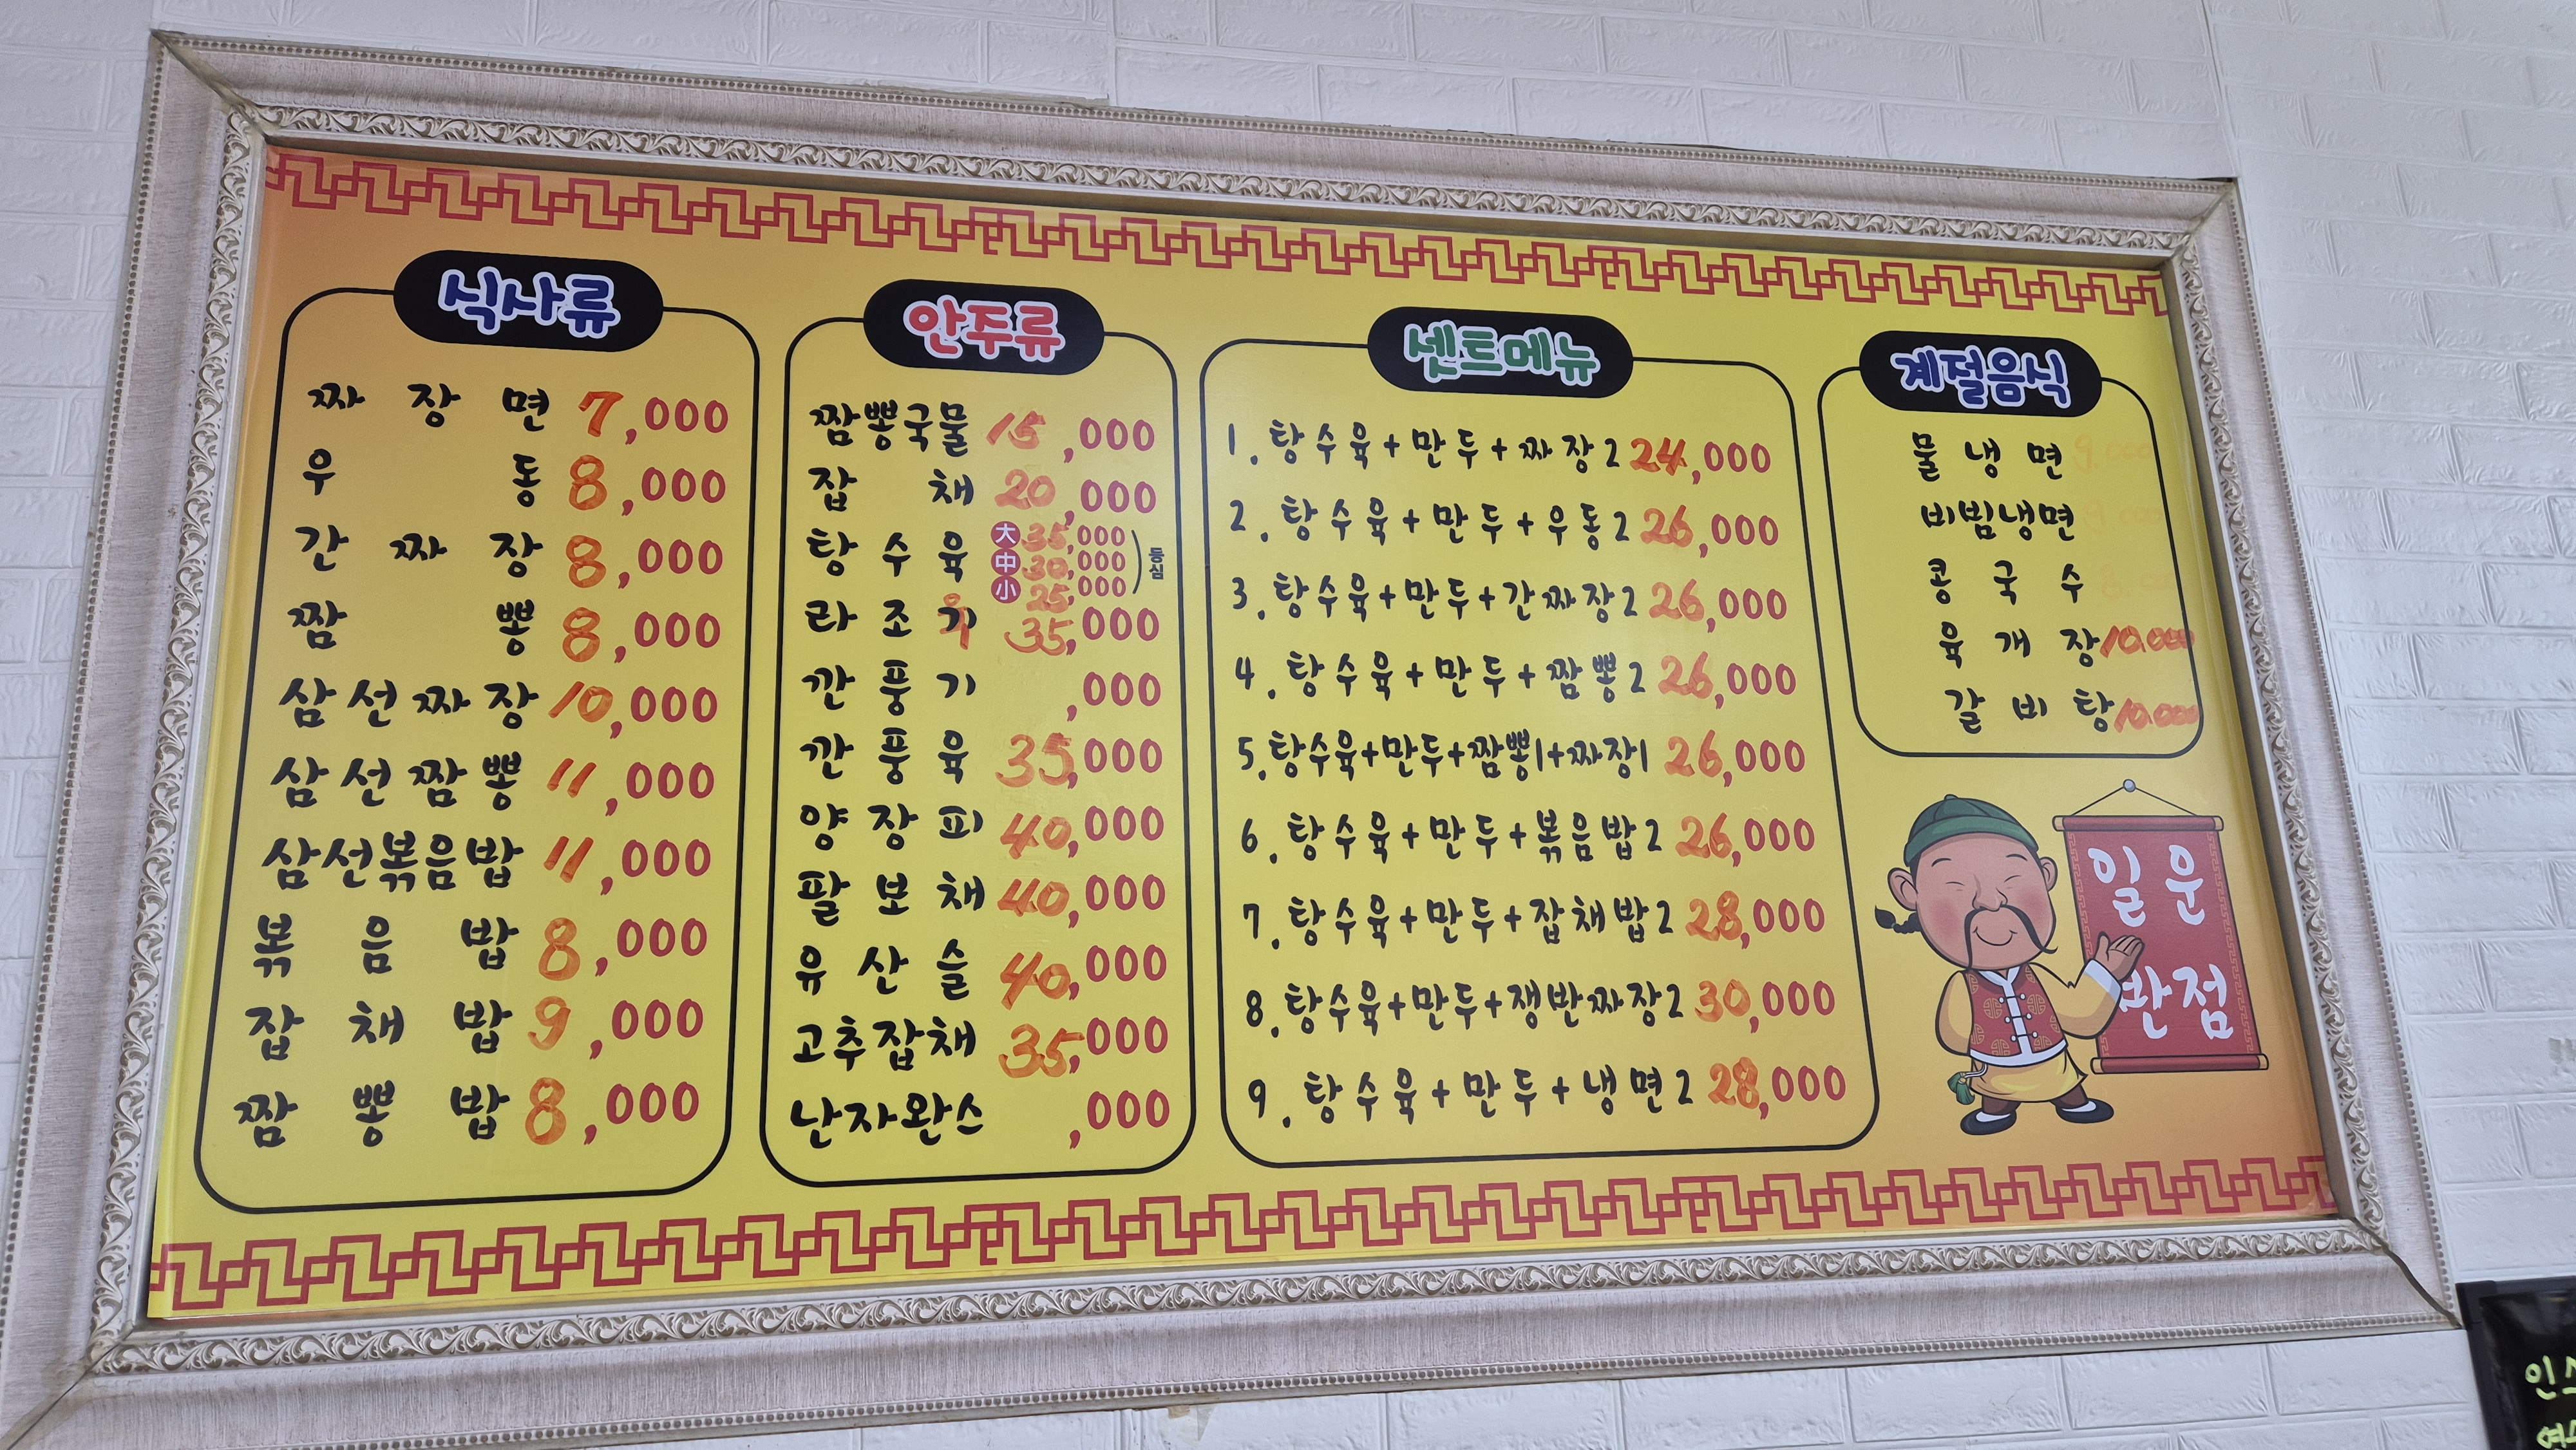 식사류
짜장면 7,000
우동 8,000
간짜장 8,000
짬뽕 8,000
삼선짜장 10,000
삼선짬뽕 11,000
삼선볶음밥 11,000
볶음밥 8,000
잡채밥 9,000
짬뽕밥 8,000
안주류
짬뽕국물 15,000
잡채 20,000
탕수육 大 35,000
中 30,000
小 25,000
등심
라조육 35,000
깐풍기 ,000
깐풍육 35,000
양장피 40,000
팔보채 40,000
유산슬 40,000
고추잡채 35,000
난자완스 ,000
셋트메뉴
1. 탕수육+만두+짜장2 24,000
2. 탕수육+만두+우동2 26,000
3. 탕수육+만두+간짜장2 26,000
4. 탕수육+만두+짬뽕2 26,000
5. 탕수육+만두+짬뽕1+짜장1 26,000
6. 탕수육+만두+볶음밥2 26,000
7. 탕수육+만두+잡채밥2 28,000
8. 탕수육+만두+쟁반짜장2 30,000
9. 탕수육+만두+냉면2 28,000
계절음식
물냉면 9,000
비빔냉면
콩국수
육개장 10,000
갈비탕 10,000
일운
반점